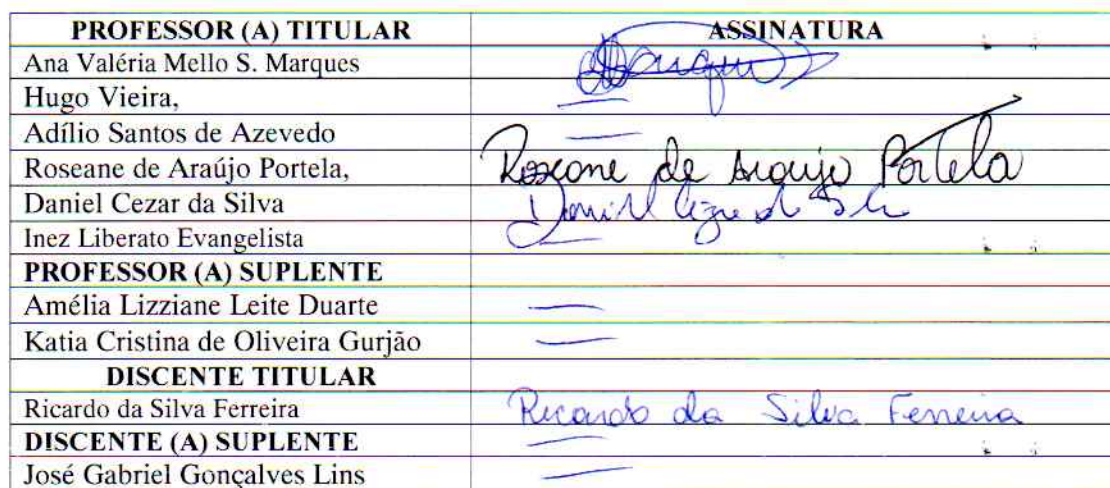 PROFESSOR (A) TITULAR ASSINATURA
Ana Valéria Mello S. Marques
Hugo Vieira, —
Adílio Santos de Azevedo —
Roseane de Araújo Portela, Roseane de Araujo Portela
Daniel Cezar da Silva
Inez Liberato Evangelista —
PROFESSOR (A) SUPLENTE
Amélia Lizziane Leite Duarte —
Katia Cristina de Oliveira Gurjão —
DISCENTE TITULAR
Ricardo da Silva Ferreira Ricardo da Silva Ferreira
DISCENTE (A) SUPLENTE —
José Gabriel Gonçalves Lins —